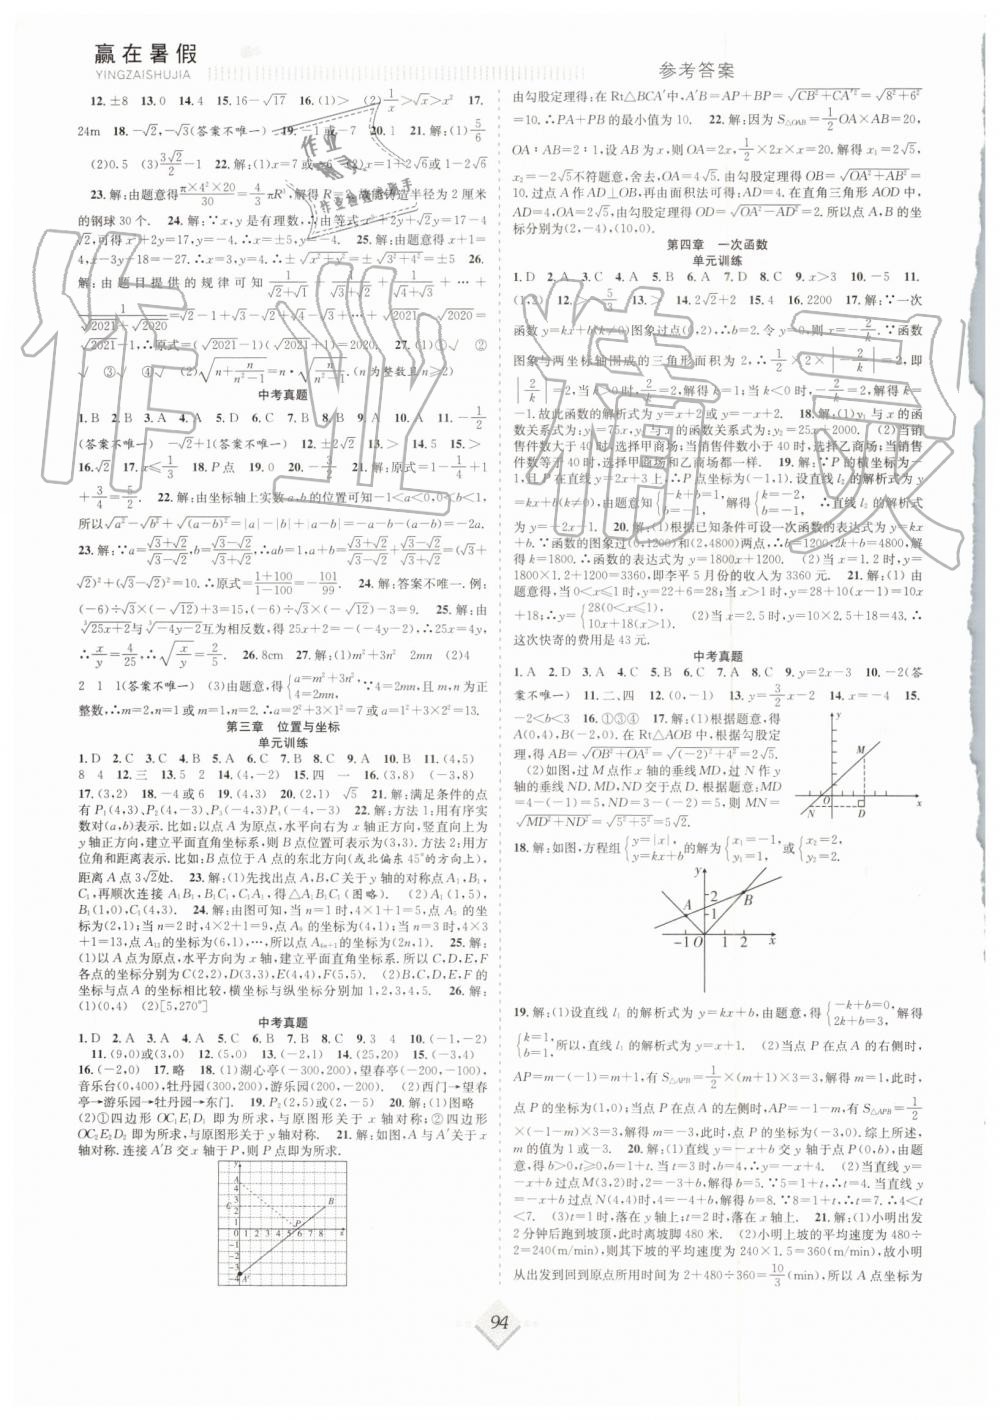 赢在暑假
YINGZAISHUJIA
参考答案
12.±8 13.0 14.4 15.16-√17 16.(1)> (2)1/x>√x>x² 17.
24m 18.-√2,-√3(答案不唯一) 19.-1或-7 20.1 21.解:(1)5/6
(2)0.5 (3)3√2/2-1 22.解:(1)x=7或x=-6 (2)x=1+2√6或1-2√6
23.解:由题意得π×4²×20/30=4/3πR³,解得R=2.故能铸造半径为2厘米
的钢球30个. 24.解:∵x,y是有理数,∴由等式x²+2y+√2y=17-4
√2,可得x²+2y=17,y=-4,∴x=±5,y=-4. 25.解:由题意得x+1=
4,x-3y-18=-27.∴x=3,y=4.∴±√x²+y²=±√3²+4²=±5 26.
解:由题目提供的规律可知1/(√2+√1)+1/(√3+√2)+1/(√4+√3)+…+
1/(√2021+√2020)=√2-1+√3-√2+√4-√3+…+√2021-√2020=
√2021-1,∴原式=(√2021-1)(√2021+1)=2020. 27.(1)①√ ②
√ ③√ ④√ (2)√(n+n/(n²-1))=n√(n/(n²-1)).(n为整数且n≥2)
中考真题
1.B 2.B 3.A 4.A 5.D 6.C 7.B 8.B 9.A 10.A 11.-1/2
(答案不唯一) -√2+1(答案不唯一) 12.±2√2 13.> 14.5 15.>
16.√2 17.x≤1/3 18.P点 19.0 20.-3/2 21.解:原式=1-1/4+1
+3/4=5/2. 22.解:由坐标轴上实数a,b的位置可知-1<a<0,0<b<1,
所以√a²-√b²+√(a-b)²=|a|-|b|+|a-b|=-a-b-(a-b)=-2a.
23.解:∵a=(√3+√2)/(√3-√2),b=(√3-√2)/(√3+√2),∴ab=1,a+b=(√3+√2)/(√3-√2)+(√3-√2)/(√3+√2)=(√3+
√2)²+(√3-√2)²=10,∴原式=(1+100)/(1-100)=-101/99. 24.解:答案不唯一.例:
(-6)÷√3×(-√12)+3=15,(-6)÷√3×(-√12)-3=9. 25.解:由
³√25x+2与³√-4y-2互为相反数,得25x+2=-(-4y-2),∴25x=4y,
∴x/y=4/25,∴√(x/y)=2/5. 26.8cm 27.解:(1)m²+3n² 2mn (2)4
2 1 1(答案不唯一) (3)由题意,得{a=m²+3n²,4=2mn,∵4=2mn,且m,n为正
整数,∴m=2,n=1或m=1,n=2.∴a=2²+3×1²=7或a=1²+3×2²=13.
第三章 位置与坐标
单元训练
1.D 2.C 3.C 4.B 5.A 6.C 7.B 8.D 9.D 10.B 11.(4,5)
8 4 12.三 13.5 2 14.(4,-2) 15.四 一 16.(3,8) (-3,8)
17.(3,2) 18.-4或6 19.(4,3) 20.(2,1) √5 21.解:满足条件的点
有P₁(4,3)、P₂(4,-3)、P₃(-4,3)P₄(-4,-3) 22.解:方法1:用有序实
数对(a,b)表示.比如:以点A为原点,水平向右为x轴正方向,竖直向上为
y轴正方向,建立平面直角坐标系,则B点位置可表示为(3,3).方法2:用方
位角和距离表示.比如:B点位于A点的东北方向(或北偏东45°的方向上),
距离A点3√2处. 23.解:(1)先找出点A,B,C关于y轴的对称点A₁,B₁,
C₁,再顺次连接A₁B₁,B₁C₁,C₁A₁,得△A₁B₁C₁(图略). (2)A₁(1,5),
B₁(1,0),C₁(4,3). 24.解:由图可知,当n=1时,4×1+1=5,点A₅的坐
标为(2,1);当n=2时,4×2+1=9,点A₉的坐标为(4,1);当n=3时,4×3
+1=13,点A₁₃的坐标为(6,1),…,所以点A₄ₙ₊₁的坐标为(2n,1). 25.解:
(1)以A点为原点,水平方向为x轴,建立平面直角坐标系.所以C,D,E,F
各点的坐标分别为C(2,2),D(3,3),E(4,4),F(5,5). (2)B,C,D,E,F的
坐标与点A的坐标相比较,横坐标与纵坐标分别加1,2,3,4,5. 26.解:
(1)(0,4) (2)[5,270°]
中考真题
1.D 2.A 3.A 4.A 5.C 6.B 7.A 8.C 9.3 4 10.(-1,-2)
11.(9,0)或(3,0) 12.(5,0) 13.(-2,1) 14.(25,20) 15.(-3,4)
16.(-2,0) 17.略 18.(1)湖心亭(-300,200),望春亭(-200,-100),
音乐台(0,400),牡丹园(300,200),游乐园(200,-200). (2)西门→望春
亭→游乐园→牡丹园→东门. 19.P₂(2,5)或(2,-5) 20.解:(1)图略
(2)①四边形OC₁E₁D₁即为所求,与原图形关于x轴对称;②四边形
OC₂E₂D₂即为所求,与原图形关于y轴对称. 21.解:如图,A与A′关于x
轴对称.连接A′B交x轴于P,则P点即为所求.
由勾股定理得:在Rt△BCA′中,A′B=AP+BP=√CB²+CA′²=√8²+6²
=10.∴PA+PB的最小值为10. 22.解:因为S△OAB=1/2OA×AB=20,
OA:AB=2:1,设AB为x,则OA=2x,1/2×2x×x=20.解得x₁=2√5,
x₂=-2√5不符题意,舍去,OA=4√5.由勾股定理得OB=√OA²+AB²=
10.过点A作AD⊥OB,再由面积法可得:AD=4.在直角三角形AOD中,
AD=4,OA=2√5,由勾股定理得OD=√OA²-AD²=2.所以点A,B的坐
标分别为(2,-4),(10,0).
第四章 一次函数
单元训练
1.D 2.A 3.C 4.A 5.B 6.A 7.D 8.C 9.x>3 10.-5 11.
(1,2) 12.>5/3 13.> 14.2√2+2 15.4 16.2200 17.解:∵一次
函数y=kx+b(k≠0)图象过点(0,2),∴b=2.令y=0,则x=-2/k.∵函数
图象与两坐标轴围成的三角形面积为2,∴1/2×2×|-2/k|=2,即
|2/k|=2,当k>0时,2/k=2,解得k=1;当k<0时,-2/k=2,解得k=
-1.故此函数的解析式为y=x+2或y=-x+2. 18.解,(1)y₁与x的函
数关系式为:y₁=75x,y₂与x的函数关系式为:y₂=25x+2000. (2)当销
售件数大于40时,选择甲商场;当销售件数小于40时,选择乙商场;当销售
件数等于40时,选择甲商场和乙商场都一样. 19.解:∵P的横坐标为-
1,且P在直线y=2x+3上,∴P点坐标为(-1,1).设直线l₂的解析式为y
=kx+b(k≠0),由题意知{-k+b=1,b=-1,解得{k=-2,b=-1,∴直线l₂的解析式
为y=-2x-1. 20.解:(1)根据已知条件可设一次函数的表达式为y=kx
+b.∵函数的图象过(0,1200)和(2,4800)两点,∴b=1200,2k+b=4800,解
得k=1800.∴函数的表达式为y=1800x+1200. (2)当x=1.2时,y=
1800×1.2+1200=3360,即李平5月份的收入为3360元. 21.解:(1)由
题意得,当0<x≤1时,y=22+6=28;当x>1时,y=28+10(x-1)=10x
+18;∴y={28(0<x≤1),10x+18(x>1). (2)当x=2.5时,y=10×2.5+18=43.∴
这次快寄的费用是43元.
中考真题
1.A 2.D 3.A 4.B 5.B 6.C 7.A 8.C 9.y=2x-3 10.-2(答
案不唯一) 11.二、四 12.(0,-1) 13.y=3/2x-2 14.x=-4 15.
-2<b<3 16.①③④ 17.解:(1)根据题意,得
A(0,4),B(-2,0).在Rt△AOB中,根据勾股定
理,得AB=√OB²+OA²=√(-2)²+4²=2√5.
(2)如图,过M点作x轴的垂线MD,过N作y
轴的垂线ND.MD,ND交于点D.根据题意:MD
=4-(-1)=5,ND=3-(-2)=5,则MN=
√MD²+ND²=√5²+5²=5√2.
18.解:如图,方程组{y=|x|,y=kx+b的解为{x₁=-1,y₁=1,或{x₂=2,y₂=2.
19.解:(1)设直线l₁的解析式为y=kx+b,由题意,得{-k+b=0,2k+b=3,解得
{k=1,b=1,所以,直线l₁的解析式为y=x+1. (2)当点P在点A的右侧时,
AP=m-(-1)=m+1,有S△APB=1/2×(m+1)×3=3,解得m=1,此时,
点P的坐标为(1,0);当点P在点A的左侧时,AP=-1-m,有S△APB=1/2
×(-m-1)×3=3,解得m=-3,此时,点P的坐标为(-3,0).综上所述,
m的值为1或-3. 20.解:(1)直线y=-x+b交y轴于点P(0,b),由题
意,得b>0,t≥0,b=1+t.当t=3时,b=4,∴y=-x+4. (2)当直线y
=-x+b过点M(3,2)时,2=-3+b,解得b=5.∵5=1+t,∴t=4.当直线y
=-x+b过点N(4,4)时,4=-4+b,解得b=8.∵8=1+t,∴t=7.∴4<t
<7. (3)t=1时,落在y轴上;t=2时,落在x轴上. 21.解:(1)小明出发
2分钟后跑到坡顶,此时离坡脚480米. (2)小明上坡的平均速度为480÷
2=240(m/min),则其下坡的平均速度为240×1.5=360(m/min),故小明
从出发到回到原点所用时间为2+480÷360=10/3(min),所以A点坐标为
94